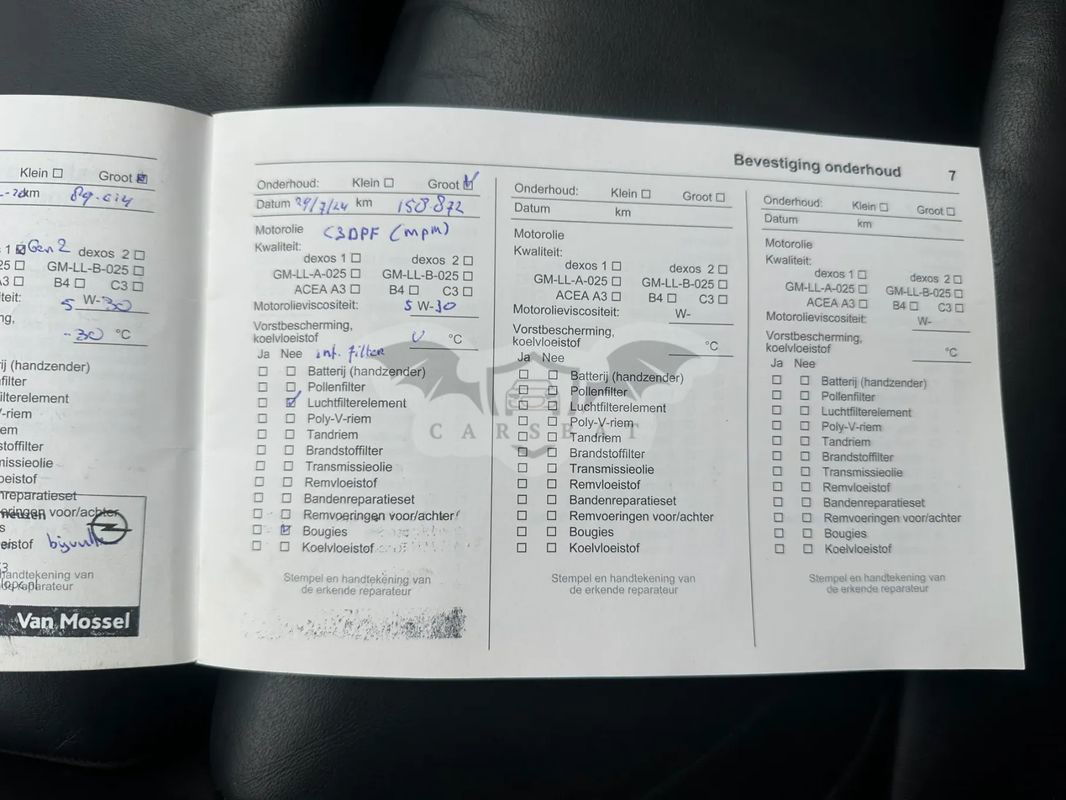 Klein ☐ Groot ☑
km 89.014
1 ☑ Gen 2 dexos 2 ☐
25 ☐ GM-LL-B-025 ☐
A3 ☐ B4 ☐ C3 ☐
teit: 5 W-30
ng,
-30 °C
ij (handzender)
filter
relement
V-riem
m
stoffilter
missieolie
oeistof
nreparatieset
oeringen voor/achter
s
eistof bijvul
andtekening van
de reparateur
Van Mossel
Bevestiging onderhoud 7
Onderhoud: Klein ☐ Groot ☑
Datum 29/7/24 km 158.872
Motorolie C3DPF (mpm)
Kwaliteit:
dexos 1 ☐ dexos 2 ☐
GM-LL-A-025 ☐ GM-LL-B-025 ☐
ACEA A3 ☐ B4 ☐ C3 ☐
Motorolieviscositeit: 5 W-30
Vorstbescherming,
koelvloeistof °C
Ja Nee int. filter
☐ ☐ Batterij (handzender)
☐ ☐ Pollenfilter
☐ ☑ Luchtfilterelement
☐ ☐ Poly-V-riem
☐ ☐ Tandriem
☐ ☐ Brandstoffilter
☐ ☐ Transmissieolie
☐ ☐ Remvloeistof
☐ ☐ Bandenreparatieset
☐ ☐ Remvoeringen voor/achter
☐ ☑ Bougies
☐ ☐ Koelvloeistof
Stempel en handtekening van
de erkende reparateur
Onderhoud: Klein ☐ Groot ☐
Datum km
Motorolie
Kwaliteit:
dexos 1 ☐ dexos 2 ☐
GM-LL-A-025 ☐ GM-LL-B-025 ☐
ACEA A3 ☐ B4 ☐ C3 ☐
Motorolieviscositeit: W-
Vorstbescherming,
koelvloeistof °C
Ja Nee
☐ ☐ Batterij (handzender)
☐ ☐ Pollenfilter
☐ ☐ Luchtfilterelement
☐ ☐ Poly-V-riem
☐ ☐ Tandriem
☐ ☐ Brandstoffilter
☐ ☐ Transmissieolie
☐ ☐ Remvloeistof
☐ ☐ Bandenreparatieset
☐ ☐ Remvoeringen voor/achter
☐ ☐ Bougies
☐ ☐ Koelvloeistof
Stempel en handtekening van
de erkende reparateur
Onderhoud: Klein ☐ Groot ☐
Datum km
Motorolie
Kwaliteit:
dexos 1 ☐ dexos 2 ☐
GM-LL-A-025 ☐ GM-LL-B-025 ☐
ACEA A3 ☐ B4 ☐ C3 ☐
Motorolieviscositeit: W-
Vorstbescherming,
koelvloeistof °C
Ja Nee
☐ ☐ Batterij (handzender)
☐ ☐ Pollenfilter
☐ ☐ Luchtfilterelement
☐ ☐ Poly-V-riem
☐ ☐ Tandriem
☐ ☐ Brandstoffilter
☐ ☐ Transmissieolie
☐ ☐ Remvloeistof
☐ ☐ Bandenreparatieset
☐ ☐ Remvoeringen voor/achter
☐ ☐ Bougies
☐ ☐ Koelvloeistof
Stempel en handtekening van
de erkende reparateur
CARSEAT